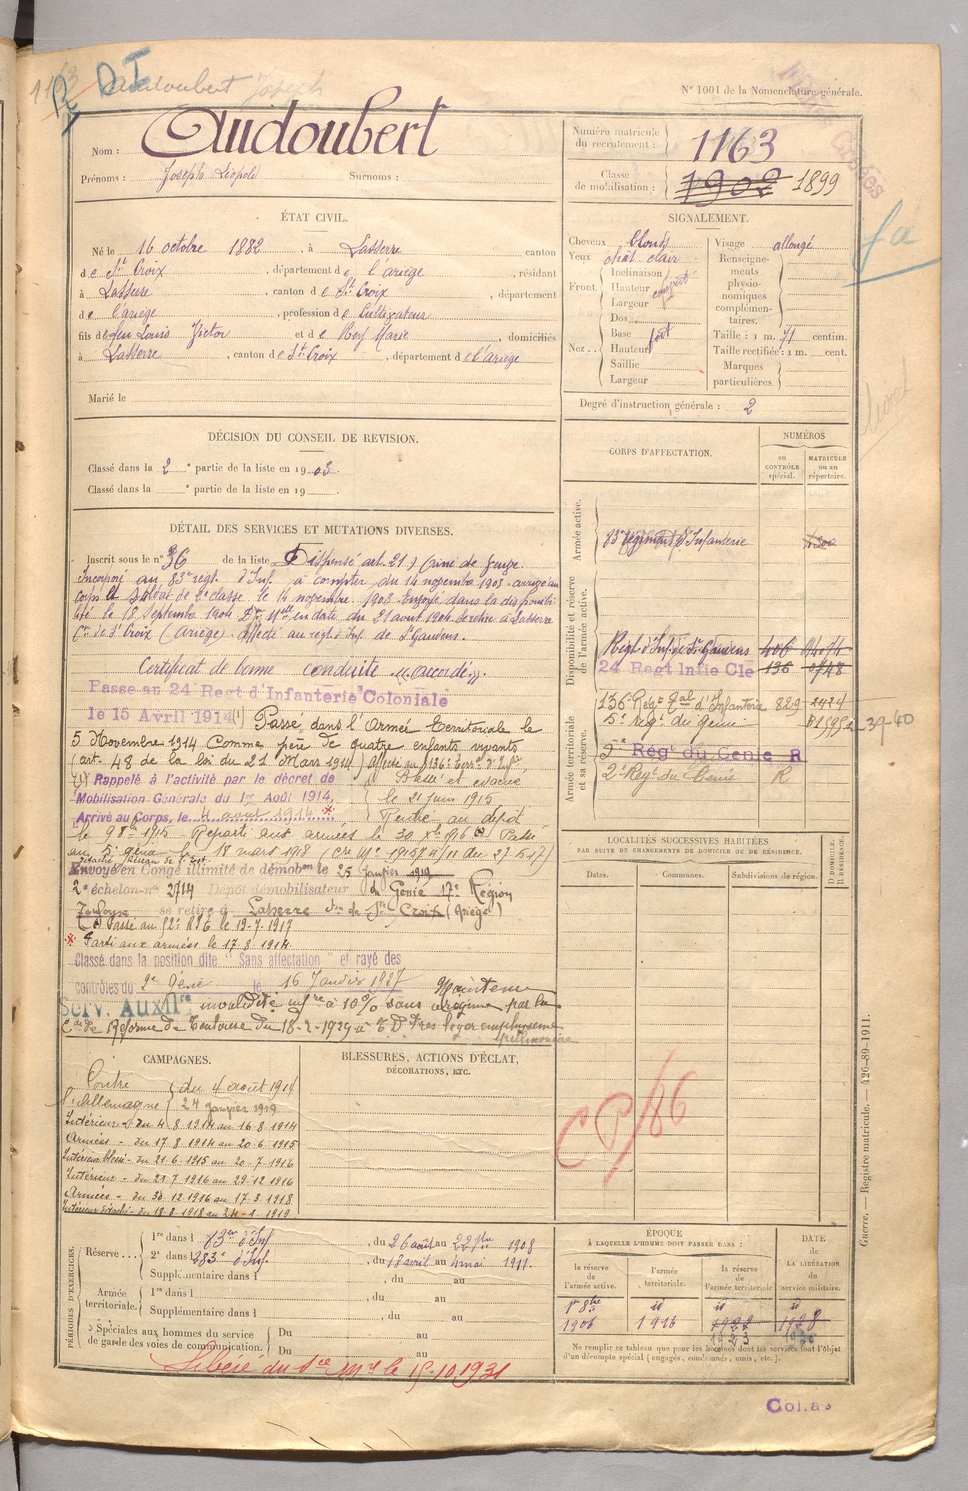 1163
Audoubert Joseph
N° 1001 de la Nomenclature générale.
Nom : Audoubert
Prénoms : Joseph Léopold Surnoms :
Numéro matricule du recrutement : 1163
Classe de mobilisation : 1902 1899
ÉTAT CIVIL.
Né le 16 octobre 1882, à Lasserre canton
de Ste Croix, département de l'ariège, résidant
à Lasserre, canton de Ste Croix, département
de l'ariège, profession de Cultivateur
fils de feu Louis Victor et de Rey Marie, domiciliés
à Lasserre, canton de Ste Croix, département de l'ariège
Marié le
SIGNALEMENT.
Cheveux blonds
Yeux chât clair
Front Inclinaison
Hauteur couvert
Largeur
Nez Dos
Base
Hauteur fort
Saillie
Largeur
Visage allongé
Renseignements physionomiques complémentaires.
Taille : 1 m. 71 centim.
Taille rectifiée : 1 m. cent.
Marques particulières.
Degré d'instruction générale : 2
DÉCISION DU CONSEIL DE REVISION.
Classé dans la 2e partie de la liste en 1903.
Classé dans la e partie de la liste en 19
DÉTAIL DES SERVICES ET MUTATIONS DIVERSES.
Inscrit sous le n° 36 de la liste Dispensé art. 21
Incorporé au 83e régt d'Inf. à compter du 14 novembre 1903. arrivé au
corps et soldat de 2e classe le 14 novembre 1903. Envoyé dans la disponibi-
lité le 18 Septembre 1904 en date du 21 aout 1904. Se retire à Lasserre
Cn de Ste Croix (Ariège). Affecté au régt d'Inf de St Gaudens.
Certificat de bonne conduite "accordé".
Passé au 24 Regt d'Infanterie Coloniale
le 15 Avril 1914 (1) Passé dans l'Armée Territoriale le
5 Novembre 1914 Comme père de quatre enfants vivants
(art. 48 de la loi du 21 Mars 1914) affecté au 136e Terr. d'Infie
(1) Rappelé à l'activité par le décret de
Mobilisation Générale du 1er Août 1914,
Arrivé au Corps, le 4 aout 1914
Blessé et évacué
le 21 juin 1915
Rentre au dépôt
le 9 8bre 1915 Reparti aux armées le 30 Xbre 1916 Passé
au 5e génie le 18 mars 1918
Envoyé en Congé illimité de démobon le 25 Janvier 1919
2e échelon no 2714 Dépôt démobilisateur du Génie 17e Région
Toulouse se retire à Lasserre Cn de Ste Croix (Ariège)
Passé au le 19-7-1917
Parti aux armées le 17.8.1914
Classé dans la position dite "Sans affectation" et rayé des
contrôles du 2e Génie le 16 Janvier 1927
Serv. Auxilre invalidité infre à 10% sans Maintenu
de Réforme de Toulouse du 18-2-1929 très léger emphysème
pulmonaire
CORPS D'AFFECTATION.
NUMÉROS
au CONTRÔLE spécial.
MATRICULE ou au répertoire.
Armée active.
83e régiment d'Infanterie
Disponibilité et réserve de l'armée active.
Régt d'Inf. de St Gaudens 406
24 Regt Intie Cle 136 0748
Armée territoriale et sa réserve.
136 Régt d'Infanterie 829 2424
5e régt du génie 39-40
Régt du Genie R
2e Régt du Génie R
LOCALITÉS SUCCESSIVES HABITÉES
PAR SUITE DE CHANGEMENTS DE DOMICILE OU DE RÉSIDENCE.
Dates. Communes. Subdivisions de région.
D. DOMICILE.
R. RÉSIDENCE.
CP/86
CAMPAGNES.
Contre l'allemagne du 4 août 1914
24 janvier 1919
Intérieur - du 4 8 1914 au 16.8.1914
Armées - du 17 8 1914 au 20.6.1915
Intérieur blessé - du 21.6.1915 au 20.7.1916
Intérieur - du 21.7.1916 au 29.12.1916
Armées - du 30.12.1916 au 17.3.1918
Intérieur - du 18.3.1918 au 24-1-1919
BLESSURES, ACTIONS D'ÉCLAT,
DÉCORATIONS, ETC.
PÉRIODES D'EXERCICES.
Réserve 1re dans l 83e d'Inf, du 26 août au 22 7bre 1908
2e dans l 283e d'Inf, du 18 avril au 4 mai 1911.
Supplémentaire dans l, du au
Armée territoriale. 1re dans l, du au
Supplémentaire dans l, du au
Spéciales aux hommes du service de garde des voies de communication. Du au
Du au
Libéré du Sce Mre le 15-10-1931
ÉPOQUE
À LAQUELLE L'HOMME DOIT PASSER DANS :
la réserve de l'armée active.
l'armée territoriale.
la réserve de l'armée territoriale
DATE de LA LIBÉRATION du service militaire.
1er 8bre 1906
id 1916
id 1922 1923
id 1928
Ne remplir ce tableau que pour les hommes dont les services font l'objet
d'un décompte spécial (engagés, condamnés, omis, etc.).
Guerre. — Registre matricule. — 426-89-1911.